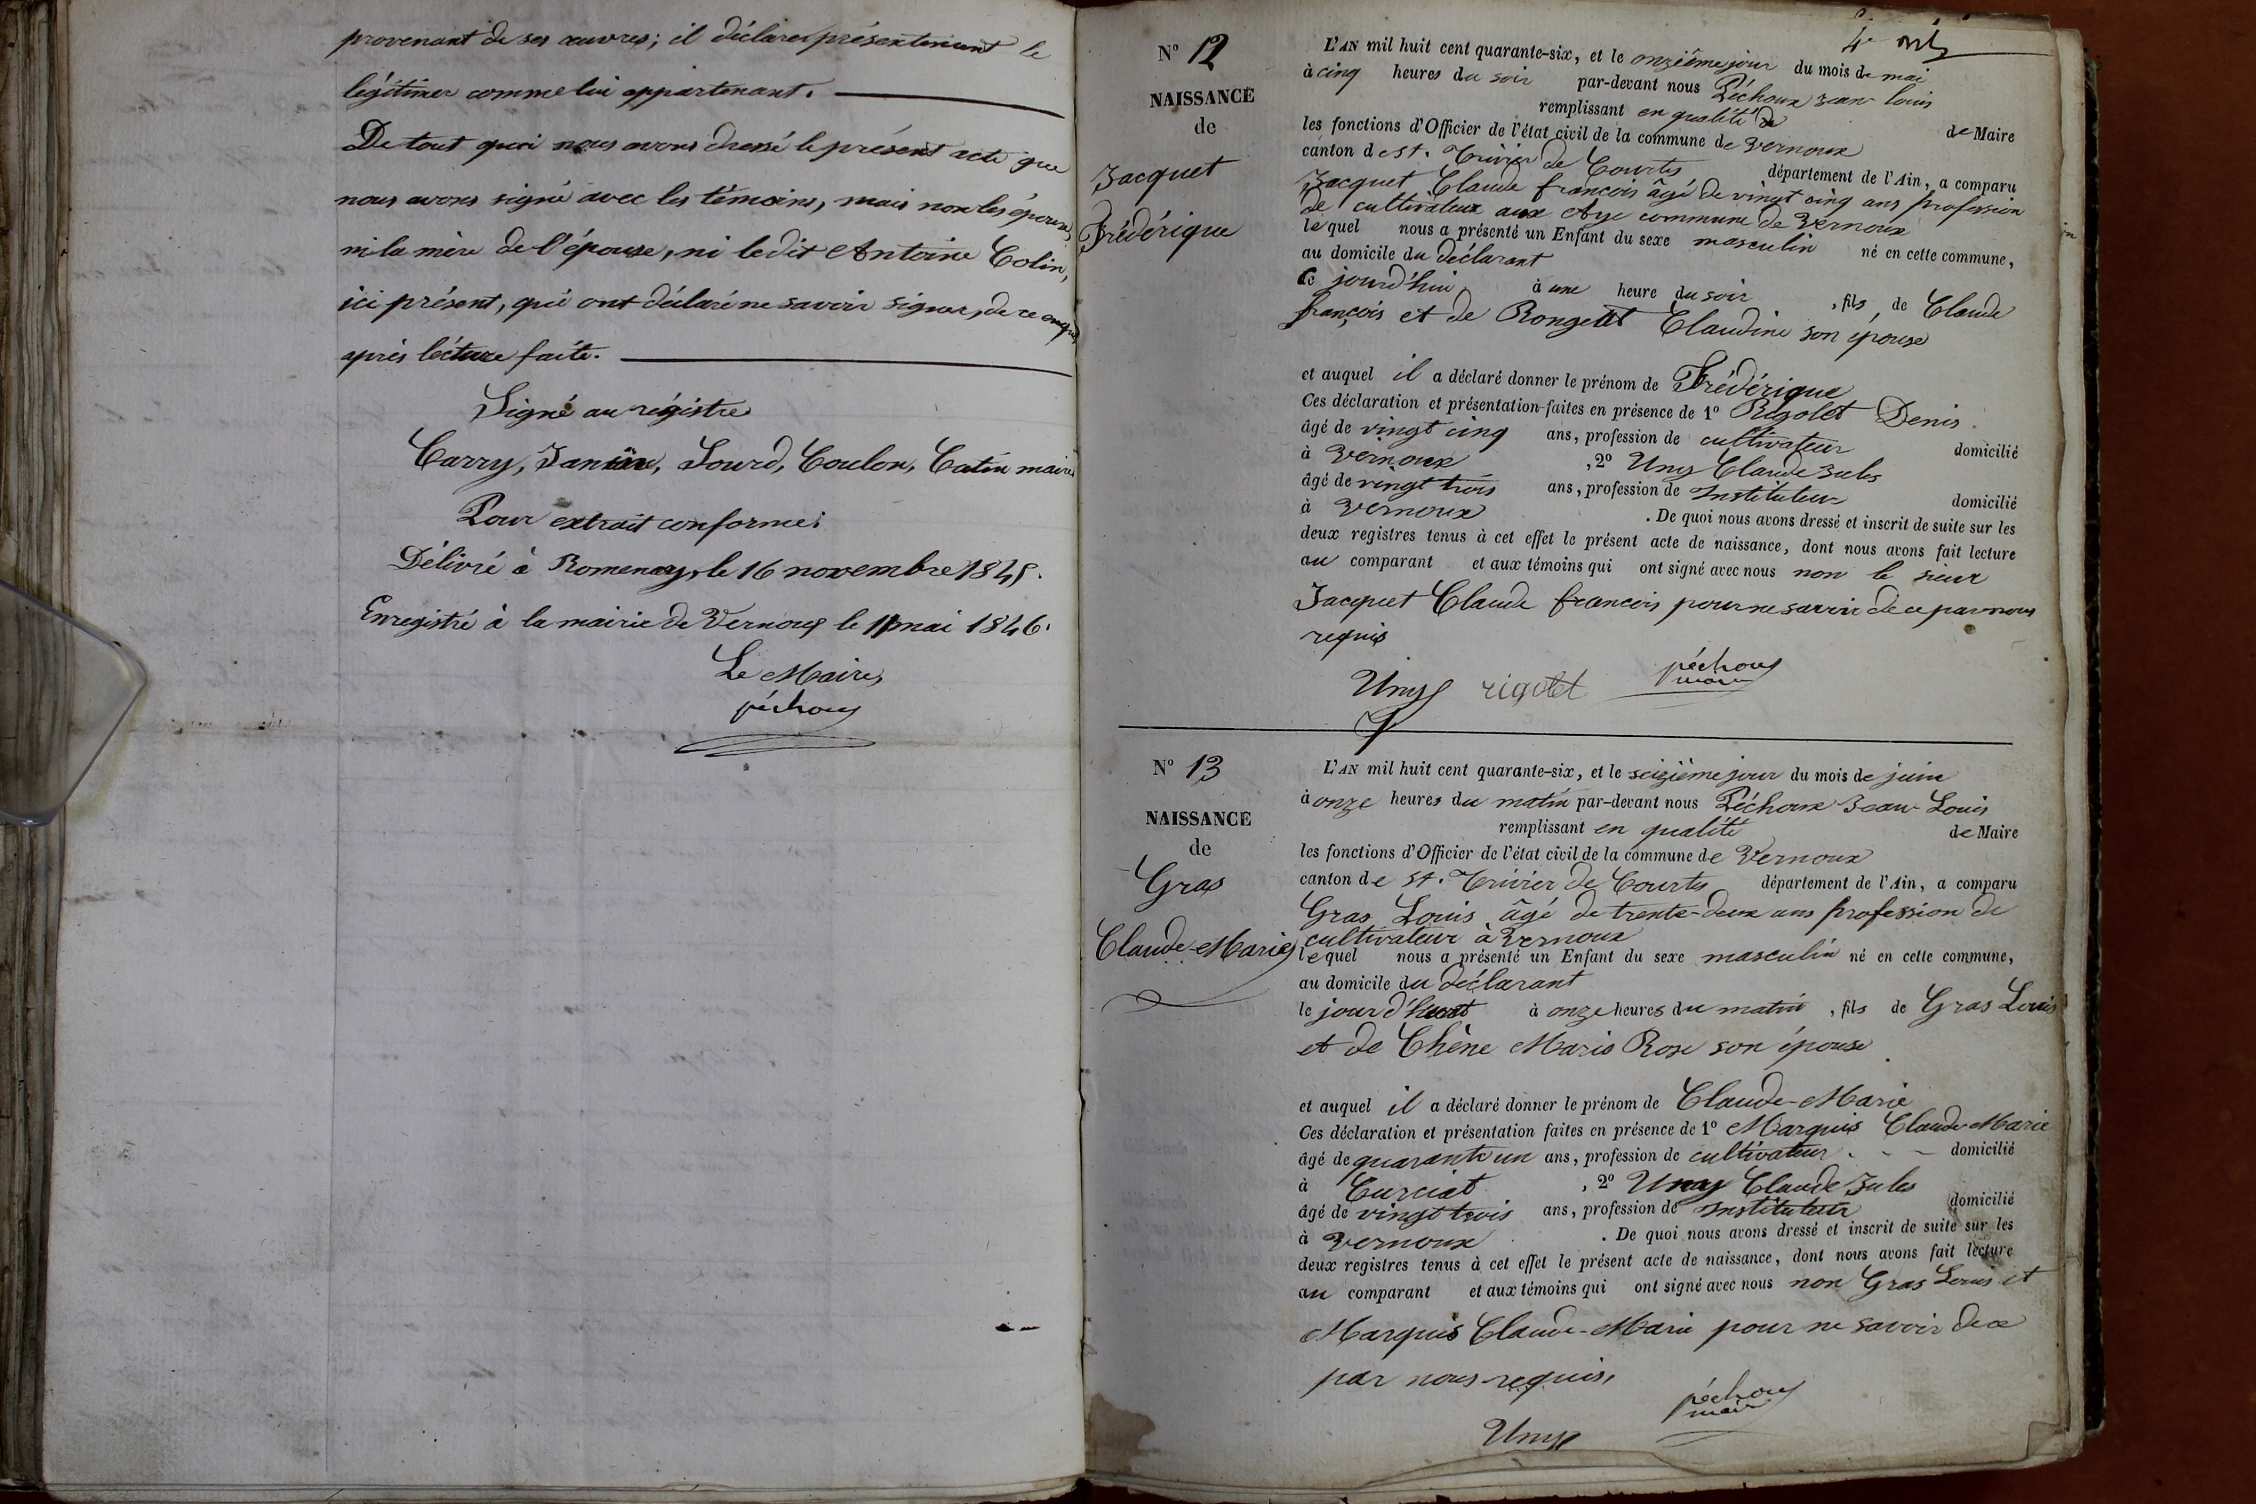 provenant de ses œuvres; il déclare présentement le
légitimer comme lui appartenant.
De tout quoi nous avons dressé le présent acte que
nous avons signé avec les témoins, mais non les époux,
ni la mère de l'épouse, ni ledit Antoine Colin,
ici présent, qui ont déclaré ne savoir signer, de ce enquis
après lecture faite.
Signé au régistre
Carry, Janin, Sourd, Coulon, Catin maire
Pour extrait conforme:
Délivré à Romenay, le 16 novembre 1845.
Enregistré à la mairie de Vernoux le 11 mai 1846.
Le Maire,
péchoux
4e
N° 12
NAISSANCE
de
Jacquet
Frédérique
L'AN mil huit cent quarante-six, et le onzième jour du mois de mai
à cinq heures du soir par-devant nous Péchoux Jean Louis
remplissant en qualité de de Maire
les fonctions d'Officier de l'état civil de la commune de Vernoux
canton de St. Trivier de Courtes département de l'Ain, a comparu
Jacquet Claude françois âgé de vingt cinq ans profession
de cultivateur aux Aye commune de Vernoux
lequel nous a présenté un Enfant du sexe masculin né en cette commune,
au domicile du déclarant
ce jourd'hui à une heure du soir , fils de Claude
françois et de Rongeat Claudine son épouse
et auquel il a déclaré donner le prénom de Frédérique
Ces déclaration et présentation faites en présence de 1° Rigolet Denis
âgé de vingt cinq ans, profession de cultivateur domicilié
à Vernoux , 2° Uny Claude Jules
âgé de vingt trois ans, profession de Instituteur domicilié
à Vernoux . De quoi nous avons dressé et inscrit de suite sur les
deux registres tenus à cet effet le présent acte de naissance, dont nous avons fait lecture
au comparant et aux témoins qui ont signé avec nous non le sieur
Jacquet Claude francois pour ne savoir de ce par nous
requis
Uny rigolet péchoux
maire
N° 13
NAISSANCE
de
Gras
Claude-Marie
L'AN mil huit cent quarante-six, et le seizième jour du mois de juin
à onze heures du matin par-devant nous Péchoux Jean Louis
remplissant en qualité de Maire
les fonctions d'Officier de l'état civil de la commune de Vernoux
canton de St. Trivier de Courtes département de l'Ain, a comparu
Gras Louis âgé de trente-deux ans profession de
cultivateur à Vernoux
lequel nous a présenté un Enfant du sexe masculin né en cette commune,
au domicile du déclarant
le jourd'hui à onze heures du matin , fils de Gras Louis
et de Chêne Marie Rose son épouse
et auquel il a déclaré donner le prénom de Claude-Marie
Ces déclaration et présentation faites en présence de 1° Marquis Claude Marie
âgé de quarante un ans, profession de cultivateur domicilié
à Curciat , 2° Uny Claude Jules
âgé de vingt trois ans, profession de Instituteur domicilié
à Vernoux . De quoi nous avons dressé et inscrit de suite sur les
deux registres tenus à cet effet le présent acte de naissance, dont nous avons fait lecture
au comparant et aux témoins qui ont signé avec nous non Gras Louis et
Marquis Claude-Marie pour ne savoir de ce
par nous requis,
péchoux
maire
Uny